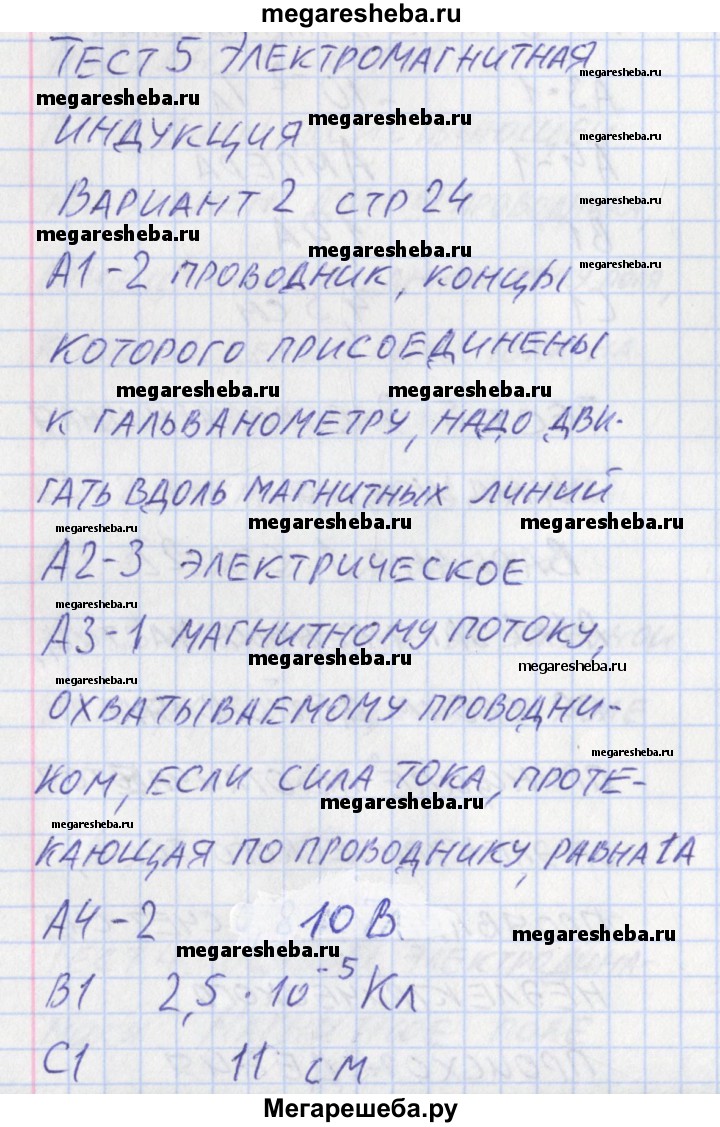 megaresheba.ru
ТЕСТ 5 ЭЛЕКТРОМАГНИТНАЯ
megaresheba.ru
megaresheba.ru
megaresheba.ru
ИНДУКЦИЯ
megaresheba.ru
ВАРИАНТ 2 СТР 24
megaresheba.ru
megaresheba.ru
megaresheba.ru
megaresheba.ru
А1-2 ПРОВОДНИК, КОНЦЫ
КОТОРОГО ПРИСОЕДИНЕНЫ
megaresheba.ru
megaresheba.ru
К ГАЛЬВАНОМЕТРУ, НАДО ДВИ-
ГАТЬ ВДОЛЬ МАГНИТНЫХ ЛИНИЙ
megaresheba.ru
megaresheba.ru
megaresheba.ru
А2-3 ЭЛЕКТРИЧЕСКОЕ
megaresheba.ru
А3-1 МАГНИТНОМУ ПОТОКУ,
megaresheba.ru
megaresheba.ru
ОХВАТЫВАЕМОМУ ПРОВОДНИ-
megaresheba.ru
КОМ, ЕСЛИ СИЛА ТОКА, ПРОТЕ-
megaresheba.ru
megaresheba.ru
КАЮЩАЯ ПО ПРОВОДНИКУ, РАВНА 1А
А4-2 10 В.
megaresheba.ru
megaresheba.ru
В1 2,5·10⁻⁵ Кл
С1 11 СМ
Мегарешеба.ру